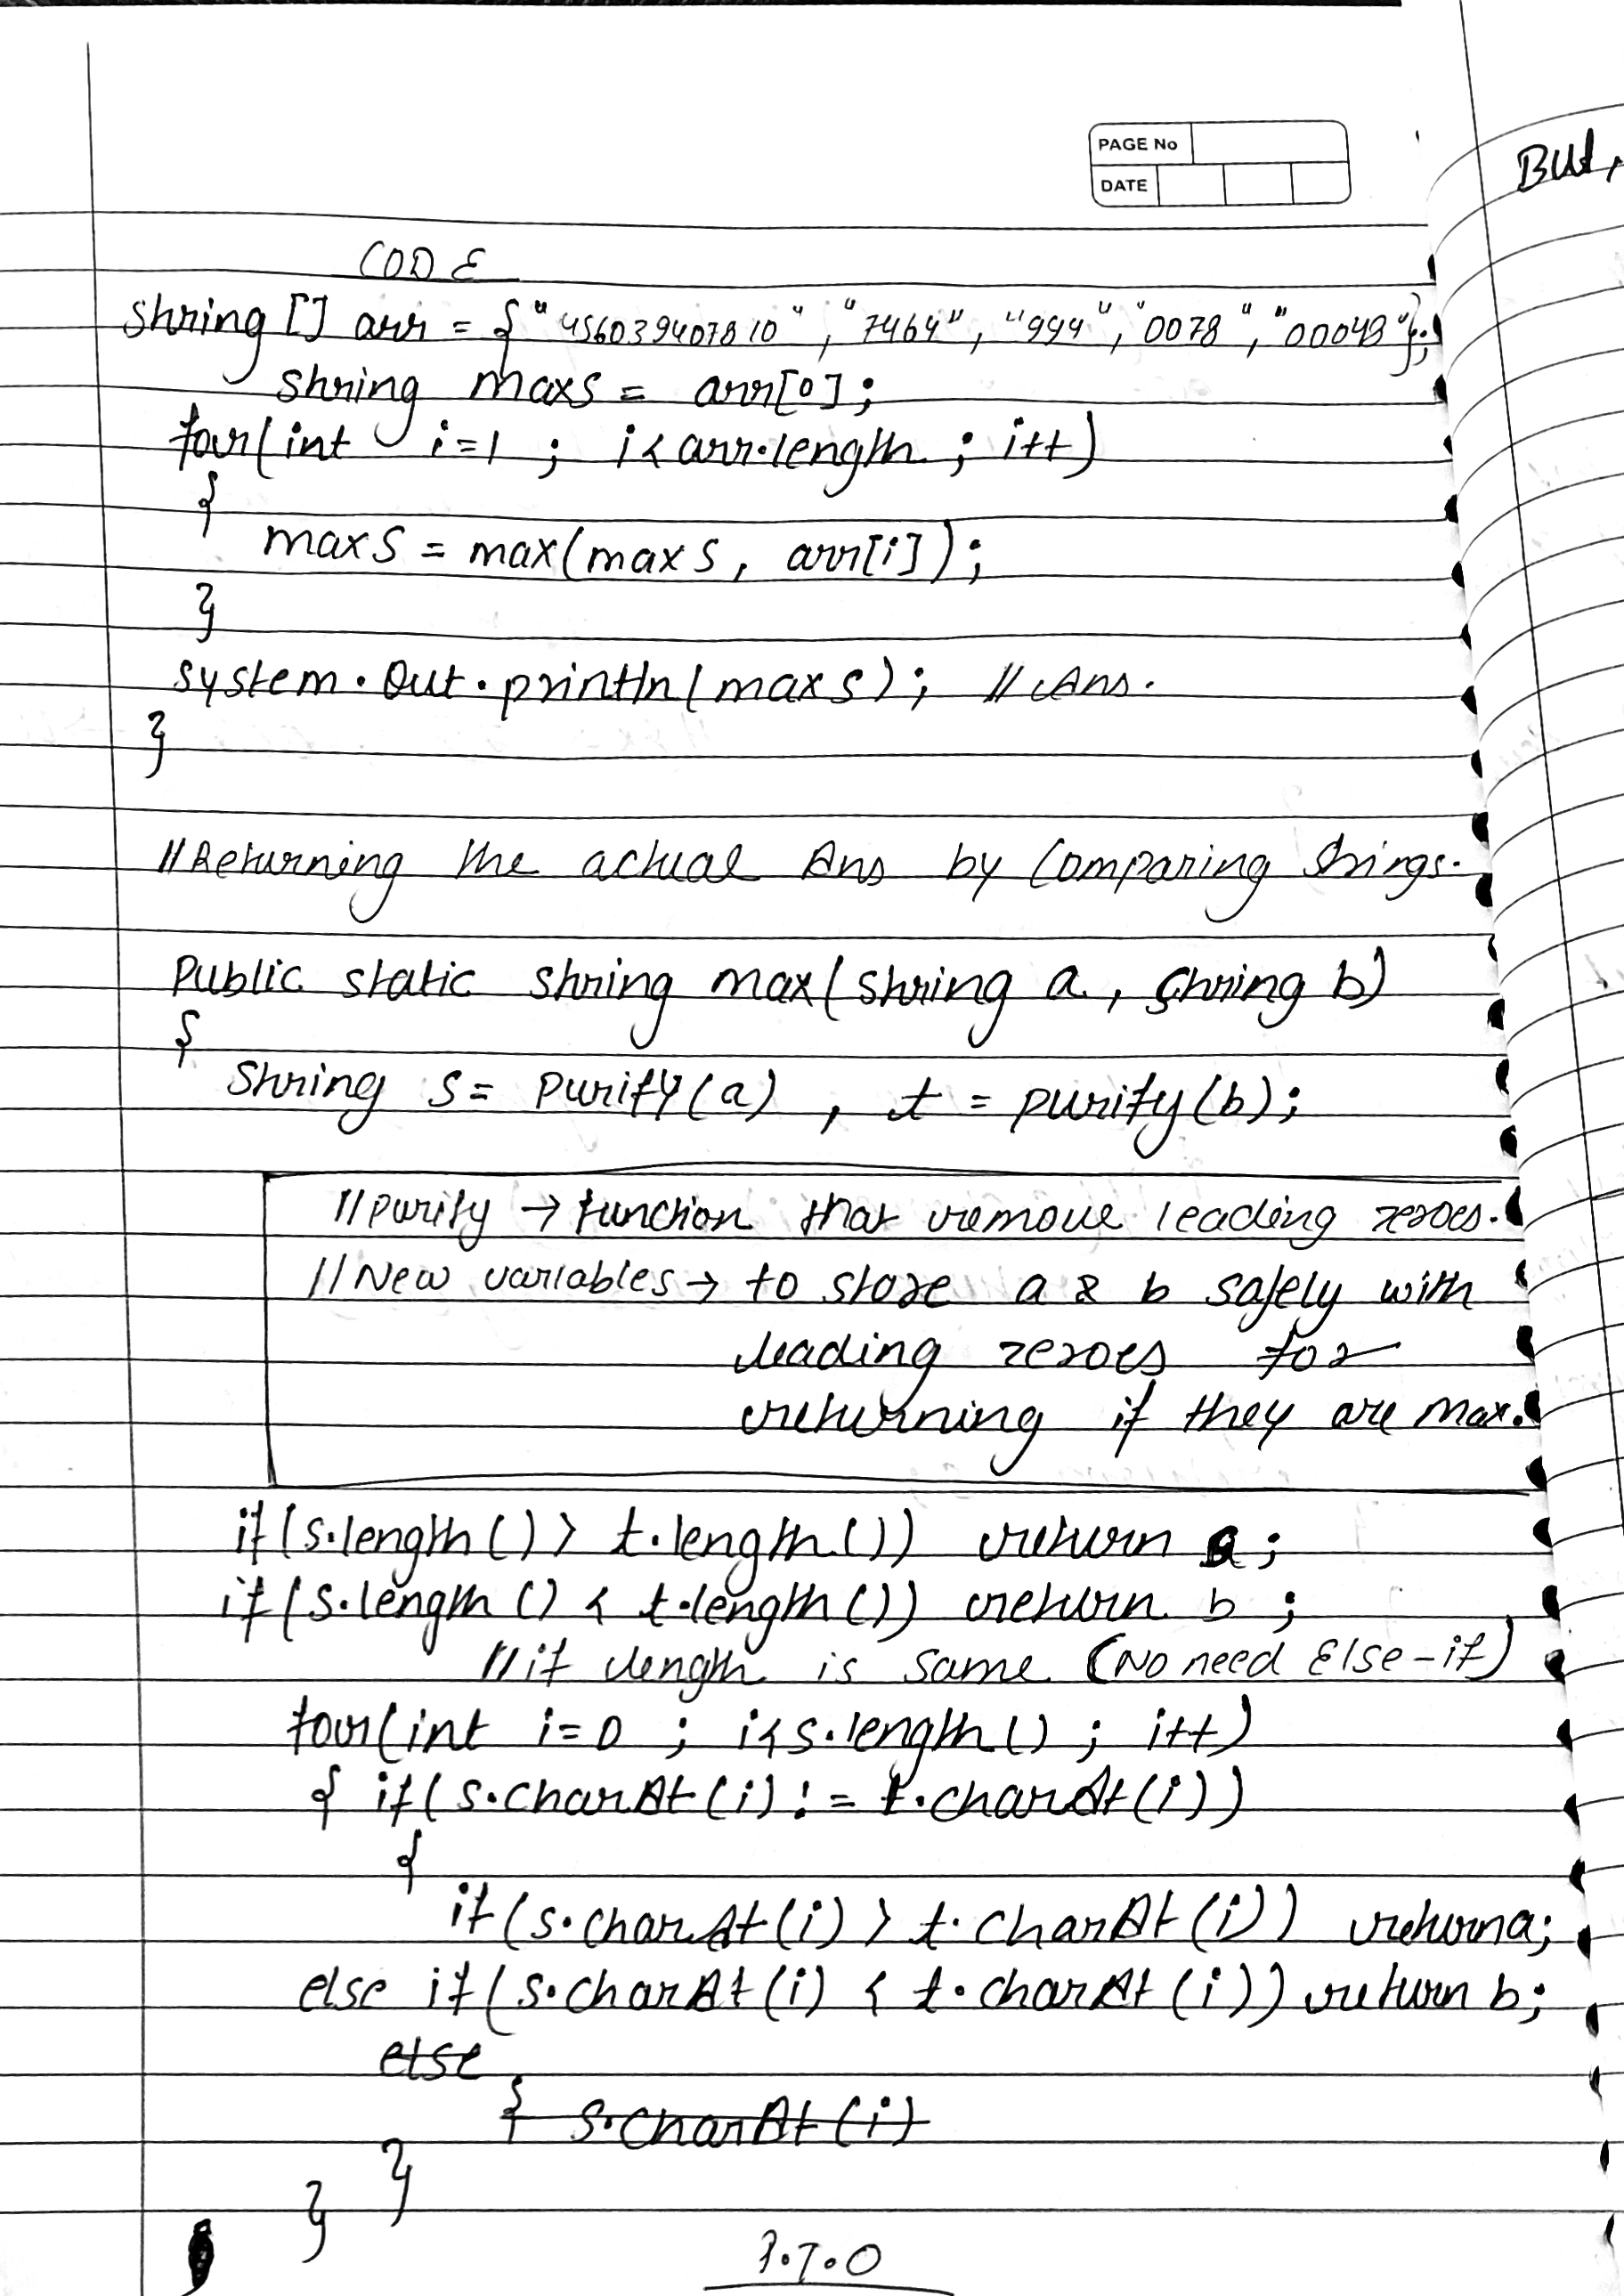 PAGE No
DATE
But,
CODE
string [] arr = {"456039407810", "7464", "999", "0078", "00048"};
string maxs = arr[0];
for(int i=1 ; i<arr.length ; i++)
{
maxs = max(maxs, arr[i]);
}
system.out.println(maxs); // Ans.
}
//Returning the actual Ans by Comparing strings.
Public static string max(string a, string b)
{
string s= purify(a) , t = purify(b);
//purify → function that remove leading zeroes.
//New variables → to store a & b safely with
leading zeroes for
returning if they are max.
if(s.length() > t.length()) return a;
if(s.length() < t.length()) return b ;
//if length is same (No need Else-if)
for(int i=0 ; i<s.length() ; i++)
{ if(s.charAt(i) != t.charAt(i))
{
if(s.charAt(i) > t.charAt(i)) return a;
else if(s.charAt(i) < t.charAt(i)) return b;
else
{ s.charAt(i)
}
}
P.T.O